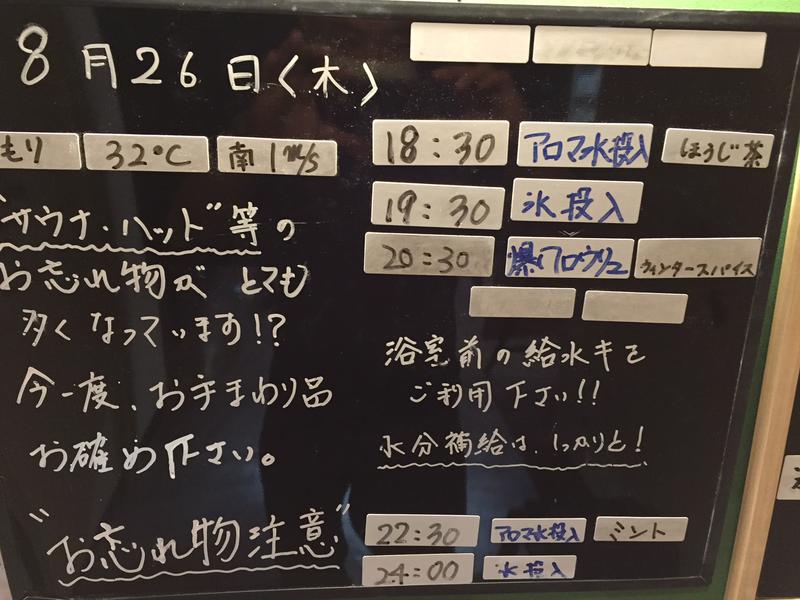 8月26日〈木〉
もり 32℃ 南1m/s
"サウナ・ハット"等の
お忘れ物が とても
多くなっています!?
今一度、お手まわり品
お確め下さい。
"お忘れ物注意"
18:30 アロマ水投入 ほうじ茶
19:30 氷投入
20:30 爆バロウリュ ウィンタースパイス
浴室前の給水キを
ご利用下さい!!
水分補給は、しっかりと!
22:30 アロマ水投入 ミント
24:00 氷投入